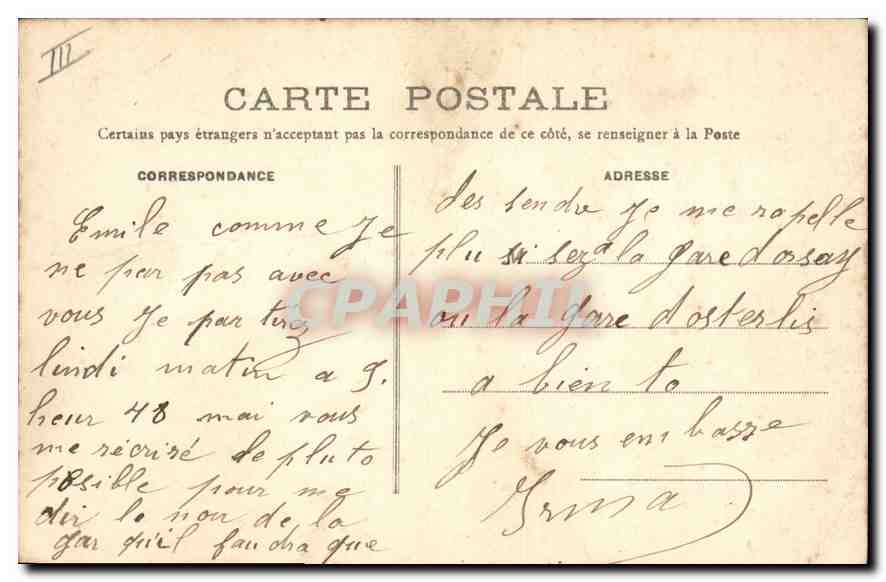 III
CARTE POSTALE
Certains pays étrangers n'acceptant pas la correspondance de ce côté, se renseigner à la Poste
CORRESPONDANCE
Emile comme Je
ne par pas avec
vous Je partiras
lindi matin a 9.
heur 48 mai vous
me récriré de pluto
posible pour me
dir le non de la
gar qu'il faudra que
ADRESSE
des sendre Je me rapelle
plu si seza la gare dorsay
ou la gare dosterlis
a bien to
Je vous embasse
Irma
CPAPHIL